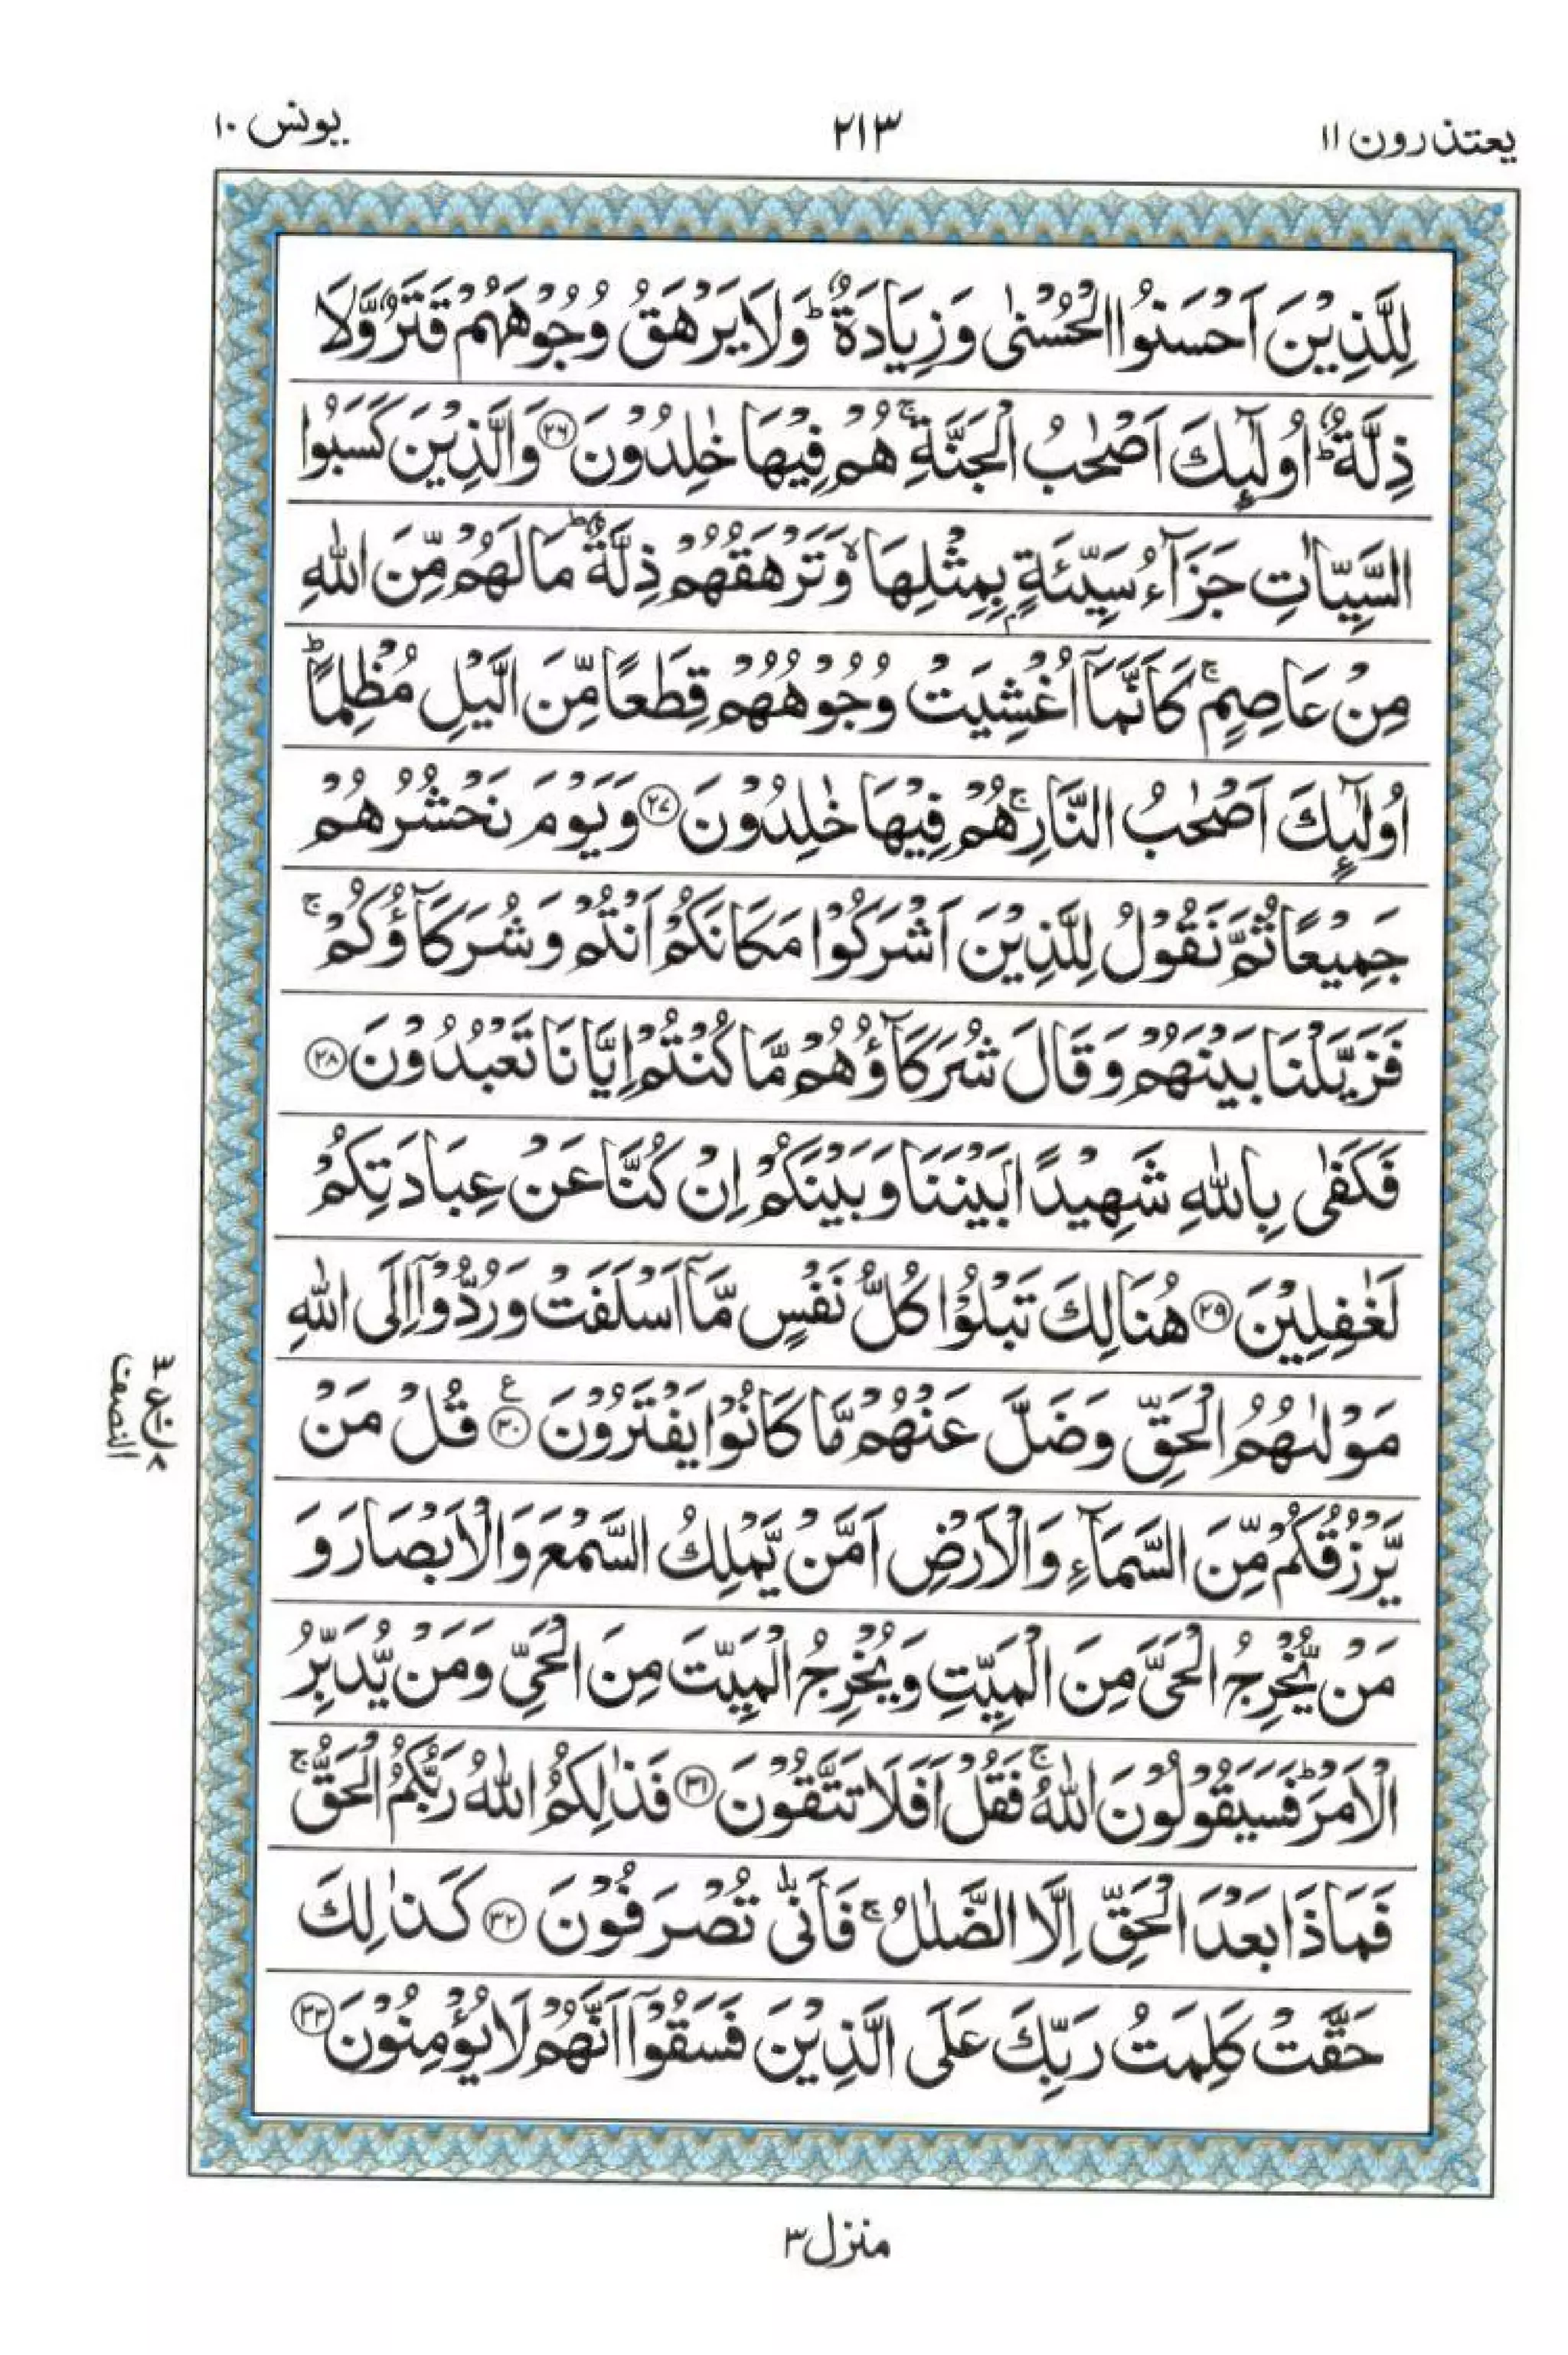 یعتذرون ۱۱
۲۱۳
یونس ۱۰
لِلَّذِیۡنَ اَحۡسَنُوا الۡحُسۡنٰی وَزِیَادَۃٌ ؕ وَلَا یَرۡهَقُ وُجُوۡهَهُمۡ قَتَرٌ وَّلَا
ذِلَّۃٌ ؕ اُولٰٓئِكَ اَصۡحٰبُ الۡجَنَّۃِ ۚ هُمۡ فِیۡهَا خٰلِدُوۡنَ ﴿۲۶﴾ وَالَّذِیۡنَ كَسَبُوا
السَّیِّاٰتِ جَزَآءُ سَیِّئَۃٍۭ بِمِثۡلِهَا ۙ وَتَرۡهَقُهُمۡ ذِلَّۃٌ ؕ مَا لَهُمۡ مِّنَ اللّٰهِ
مِنۡ عَاصِمٍ ۚ كَاَنَّمَاۤ اُغۡشِیَتۡ وُجُوۡهُهُمۡ قِطَعًا مِّنَ الَّیۡلِ مُظۡلِمًا ؕ
اُولٰٓئِكَ اَصۡحٰبُ النَّارِ ۚ هُمۡ فِیۡهَا خٰلِدُوۡنَ ﴿۲۷﴾ وَیَوۡمَ نَحۡشُرُهُمۡ
جَمِیۡعًا ثُمَّ نَقُوۡلُ لِلَّذِیۡنَ اَشۡرَكُوۡا مَكَانَكُمۡ اَنۡتُمۡ وَشُرَكَآؤُكُمۡ ۚ
فَزَیَّلۡنَا بَیۡنَهُمۡ وَقَالَ شُرَكَآؤُهُمۡ مَّا كُنۡتُمۡ اِیَّانَا تَعۡبُدُوۡنَ ﴿۲۸﴾
فَكَفٰی بِاللّٰهِ شَهِیۡدًۢا بَیۡنَنَا وَبَیۡنَكُمۡ اِنۡ كُنَّا عَنۡ عِبَادَتِكُمۡ
لَغٰفِلِیۡنَ ﴿۲۹﴾ هُنَالِكَ تَبۡلُوۡا كُلُّ نَفۡسٍ مَّاۤ اَسۡلَفَتۡ وَرُدُّوۡۤا اِلَی اللّٰهِ
مَوۡلٰىهُمُ الۡحَقِّ وَضَلَّ عَنۡهُمۡ مَّا كَانُوۡا یَفۡتَرُوۡنَ ﴿۳۰﴾ ع قُلۡ مَنۡ
یَّرۡزُقُكُمۡ مِّنَ السَّمَآءِ وَالۡاَرۡضِ اَمَّنۡ یَّمۡلِكُ السَّمۡعَ وَالۡاَبۡصَارَ وَ
مَنۡ یُّخۡرِجُ الۡحَیَّ مِنَ الۡمَیِّتِ وَیُخۡرِجُ الۡمَیِّتَ مِنَ الۡحَیِّ وَمَنۡ یُّدَبِّرُ
الۡاَمۡرَ ؕ فَسَیَقُوۡلُوۡنَ اللّٰهُ ۚ فَقُلۡ اَفَلَا تَتَّقُوۡنَ ﴿۳۱﴾ فَذٰلِكُمُ اللّٰهُ رَبُّكُمُ الۡحَقُّ ۚ
فَمَاذَا بَعۡدَ الۡحَقِّ اِلَّا الضَّلٰلُ ۚ فَاَنّٰی تُصۡرَفُوۡنَ ﴿۳۲﴾ كَذٰلِكَ
حَقَّتۡ كَلِمَتُ رَبِّكَ عَلَی الَّذِیۡنَ فَسَقُوۡۤا اَنَّهُمۡ لَا یُؤۡمِنُوۡنَ ﴿۳۳﴾
النصف
منزل ۳